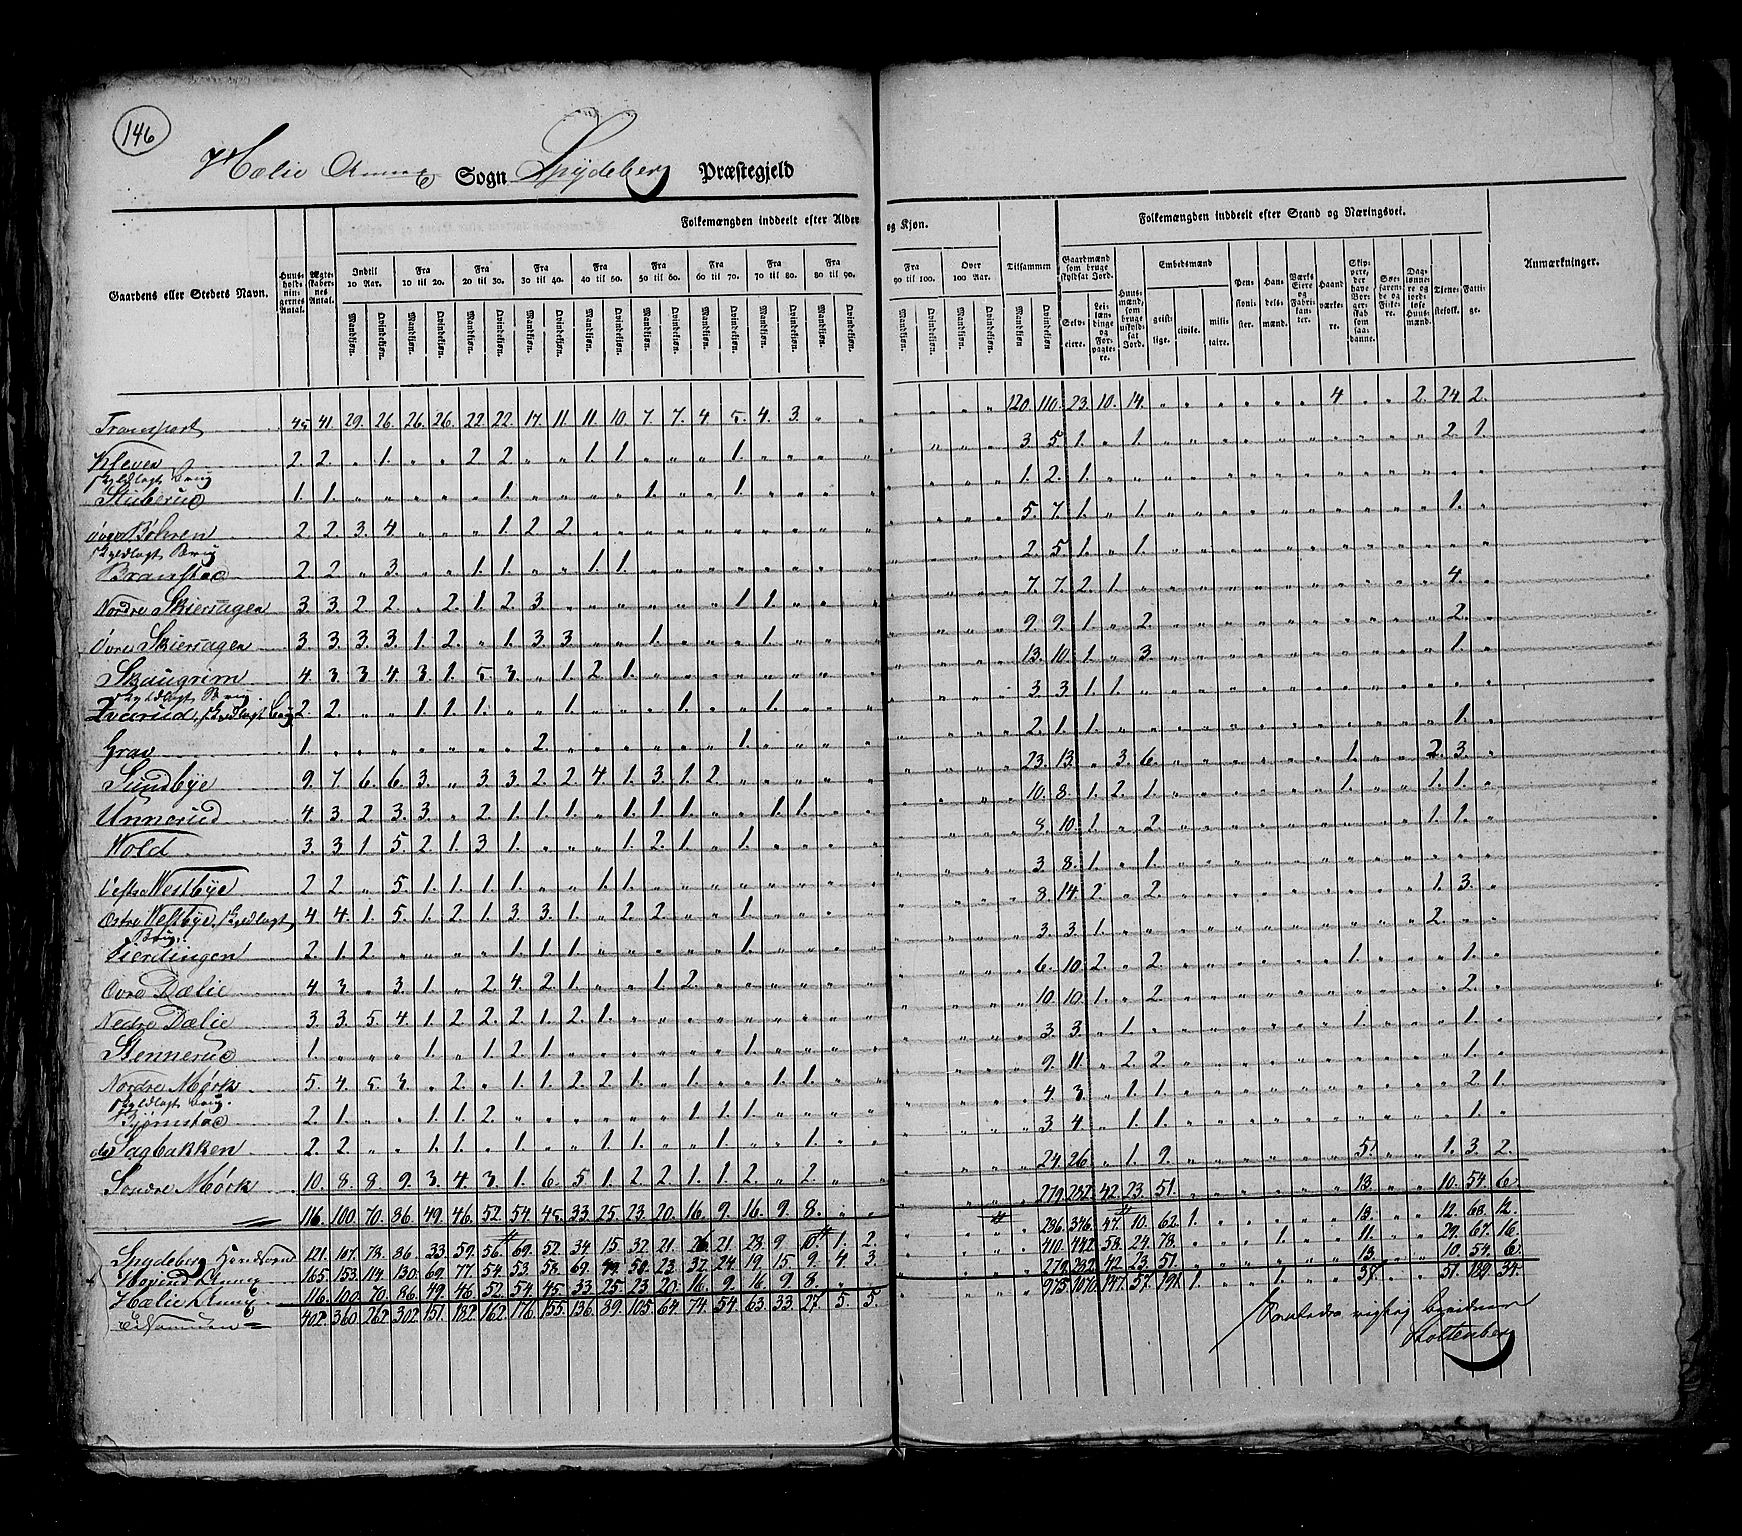 146
Hælie Annex Sogn Spydeberg Præstegjeld
Folkemængden inddeelt efter Alder og Kjøn.
Folkemængden inddeelt efter Stand og Næringsvei.
Gaardens eller Stedets Navn.
Huusholdningernes Antal.
Ægteskabernes Antal.
Indtil 10 Aar.
Fra 10 til 20.
Fra 20 til 30.
Fra 30 til 40.
Fra 40 til 50.
Fra 50 til 60.
Fra 60 til 70.
Fra 70 til 80.
Fra 80 til 90.
Fra 90 til 100.
Over 100 Aar.
Tilsammen
Mandkjøn. Qvindekjøn.
Gaardmænd som bruge skyldsat Jord.
Selveiere.
Leilændinge og Forpagtere.
Huusmænd, som bruge uskyldsat Jord.
Embedsmænd
geistlige. civile. militaire.
Pensionister.
Handelsmænd.
Værks Eiere og Fabrikanter.
Haandværkere.
Skippere, der have Borgerskab som saadanne.
Søefarende og Fiskere.
Daglønnere og jordløse Huusmænd.
Tjenestefolk.
Fattige.
Anmærkninger.
Transport 45 41. 29. 26. 26. 26. 22. 22. 17. 11. 11. 10. 7. 7. 4. 5. 4. 3. „ „ „ „ „ „ 120 110. 23. 10. 14. „ „ „ „ „ „ 4 „ „ 2. 24. 2.
Kleven 2. 2. „ 1. „ „ 2 2. „ „ 1. 1. „ „ „ 1. „ „ „ „ 3. 5. 1. „ 1. 2. 1.
skyldlagt Brug
Stuberud 1. 1. „ „ „ „ „ 1. „ „ „ „ 1. „ „ 1. „ „ „ „ 1. 2. 1.
øvre Bøhren 2. 2. 3. 4 „ „ „ 1. 2 2. 5. 7. 1. „ 1. 1.
skyldlagt Brug
Branstad 2. 2 „ 3. „ „ 1. 1. „ „ 1. 1. 2. 5. 1. „ 1.
Nordre Skiersagen 3 3. 2 2. „ 2. 1. 2. 3. „ „ „ „ „ „ 1. 1. 7. 7. 2. 1. 4.
Øvre Skiersagen 3. 3. 3. 3. 1. 2. „ 1. 3 3. „ „ 1. „ „ „ 1. 9. 9. 1. „ 2. 2.
Skaugrim 4. 3 3. 4. 3. 1. 5. 3. „ 1. 2. 1. 13. 10. 1. „ 3. 1.
skyldlagt Brug.
2. 2. „ „ 1. 1. 1. „ „ 1. „ „ „ 1. „ „ 1. 3. 3. 1. 1.
Grav 1. „ „ „ „ „ „ „ 2. „ „ „ „ „ „ 1. 2. 1. 1. 1.
Sundbye 9. 7. 6. 6. 3. „ 3. 3. 2. 2. 4 1. 3. 1. 2. 23. 13. „ 3. 6. 1. 2. 3.
Unnerud 4. 3 2 3. 3. „ 2. 1. 1. 1. „ 1. 1. 1. „ „ 1. 1. 10. 8. 1. 2. 1. 1. 1. 1.
Wold 3. 3 1. 5. 2. 1. 3 1. „ „ „ 1. 2. 1. „ 1. 9. 10. 1. „ 2. 1. 1.
Westbye 2. 2. „ 5. 1. 1. 1. 1. „ „ 1. 1. 3 8. 1. „ 1.
Østre Westbye, skyldlagt Brug. 4 4. 1. 5. 1. 2. 1. 3. 3. 1. „ 2. 2. „ „ 1. 8. 14. 2. „ 2. 1. 3.
2. 1. 2. „ „ „ „ 1. 1. 1. „ „ „ „ „ 1. 3. 3. 1. 2.
Øvre Dælie 4. 3. „ 3. 1. „ 2 4. 2. 1. „ „ 1. 2. 6. 10. 2. „ 2. 1. 1.
Nedre Dælie 3. 3. 5. 4. 1. 2. 2. 2. 1. 2. 1. 10. 10. 1. „ 2. 2.
Stennerud 1. „ „ „ 1. „ 1. 2. 1. „ „ „ „ „ „ 1. 3. 3. „ 1. 1. 1.
Nordre Mørk 5. 4. 5. 3. „ 2. „ 1. 1. 2. 2. 1. „ 1. „ „ 1. 1. 9. 11. „ 2. 2. 1.
skyldlagt Brug.
Bjørnstad 2. 1. „ „ 1. 1. 2. „ „ „ „ „ „ „ 1. 1. 1. 4. 3. „ 1. 1. 2. 1.
do Sagbakken 2. 2. „ „ 1. 1. „ 1. „ „ 1. 1. „ „ „ 1. „ „ 1. 3. 4. „ 1. 1. 1.
Søndre Mørk 10. 8. 8. 9. 3. 4. 3. 1. 6. 5. 1. 2. 2. 1. 1. 2. „ 2. 24. 26. „ 1. 9. 5. 1. 3. 2.
116. 100. 70. 86. 49. 46. 52. 54. 45. 33. 25. 23. 20. 16. 9. 16. 9. 8. „ „ 279. 232. 42. 23. 51. 13. 10. 54. 6.
Spydeberg Hovedsogn 121. 107. 78. 86. 33. 59. 56. 69. 52. 34. 15. 32. 21. 26. 21. 28. 9. 10. 1. 2. 286. 346. 47. 10. 62. 1. 13. 12. 68. 12.
Hovind Annex 165. 153. 114. 130. 69. 77. 54. 53. 58. 69. 49. 50. 23. 32. 24. 19. 15. 9. 4. 3. 410. 442. 58. 24. 78. 1. 11. 29. 67. 16.
Hælie Annex 116. 100. 70. 86. 49. 46. 52. 54. 45. 33. 25. 23. 20. 16. 9. 16. 9. 8. 279. 232. 42. 23. 51. 13. 10. 54. 6.
402. 360. 262. 302. 151. 182. 162. 176. 155. 136. 89. 105. 64. 74. 54. 63. 33. 27. 5. 5. 975. 1070. 147. 57. 191. 1. 1. 37. 51. 189. 34.
Stoltenberg